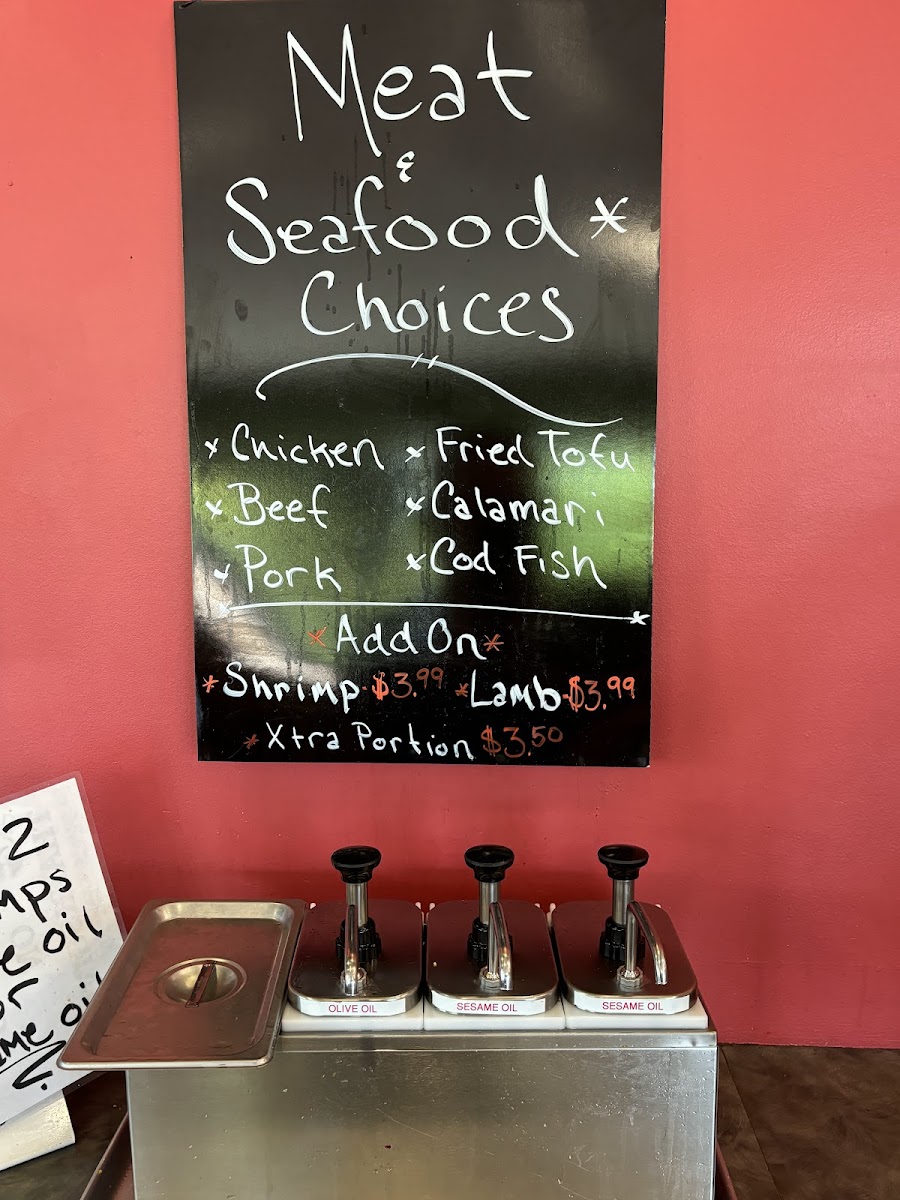 Meat
&
Seafood *
Choices
* Chicken * Fried Tofu
* Beef * Calamari
* Pork * Cod Fish
* Add On *
* Shrimp - $3.99 * Lamb - $3.99
* Xtra Portion $3.50
2
oil
oil
OLIVE OIL
SESAME OIL
SESAME OIL